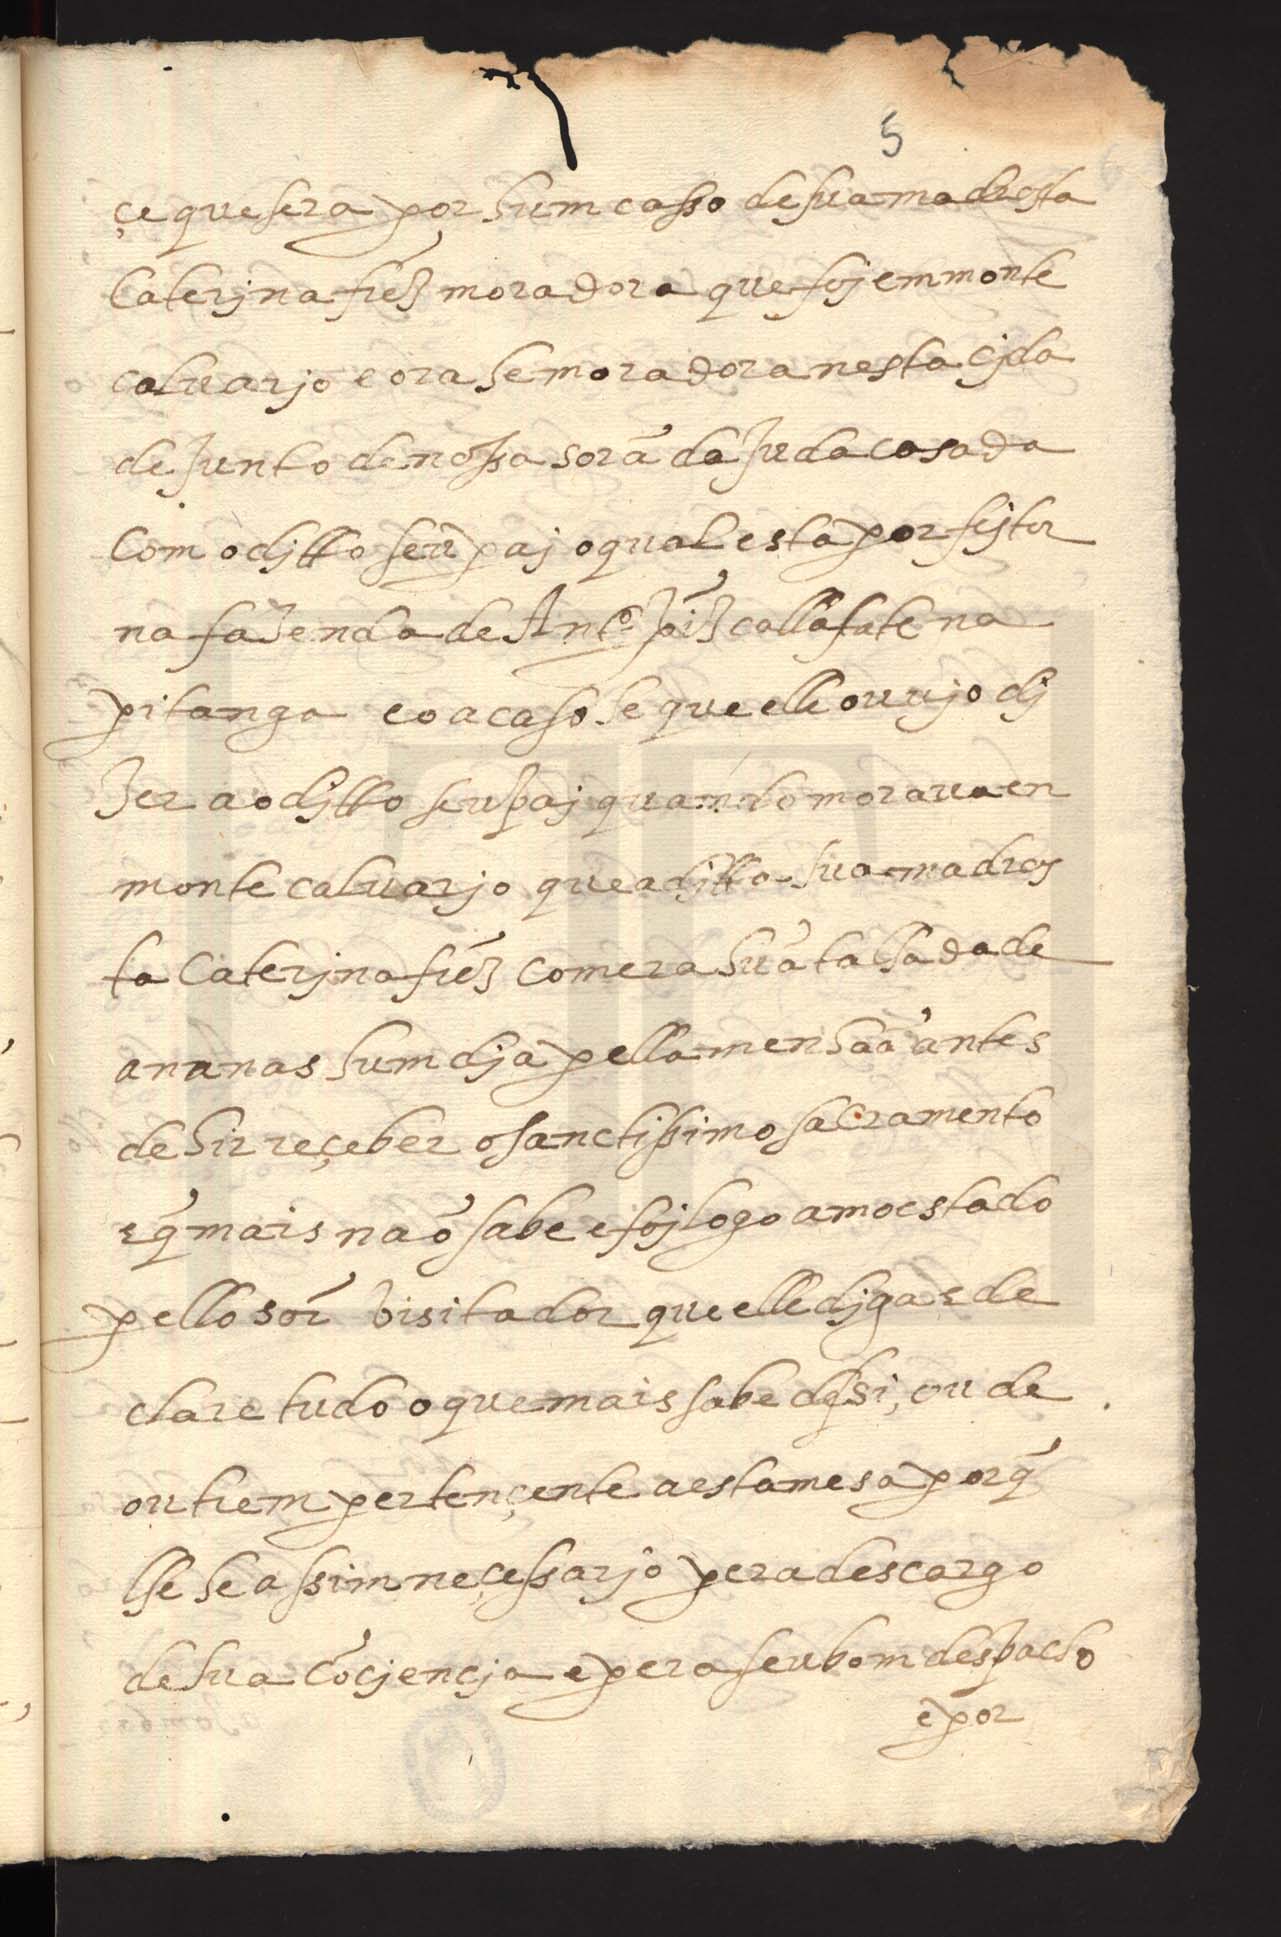 5
çe que sera por hum casso de sua madrasta
Caterjna frēz moradora que foj em monte
caluarjo e ora he moradora nesta cjda
de Junto de nossa sorã da Juda casada
Com o djtto seu paj o qual esta por fejtor
na fazenda de Antº piz callafate na
pitanga e o a caso he que elle ouujo dj
zer ao djtto seu paj quamdo moraua en
monte caluarjo que a djtta sua madras
ta Caterjna frēz comera hũa talhada de
ananas hum dja pella menhaã antes
de hir reçeber o sanctissimo sacramento
e q̃ mais naõ sabe e foj logo amoestado
pello sor̃ visitador que elle djga e de
clare tudo o que mais sabe de si, ou de
outrem pertençente a esta mesa porq̃
lhe he assim neçessarjo pera descargo
de sua cõcjencja e pera seu bom despacho
e por